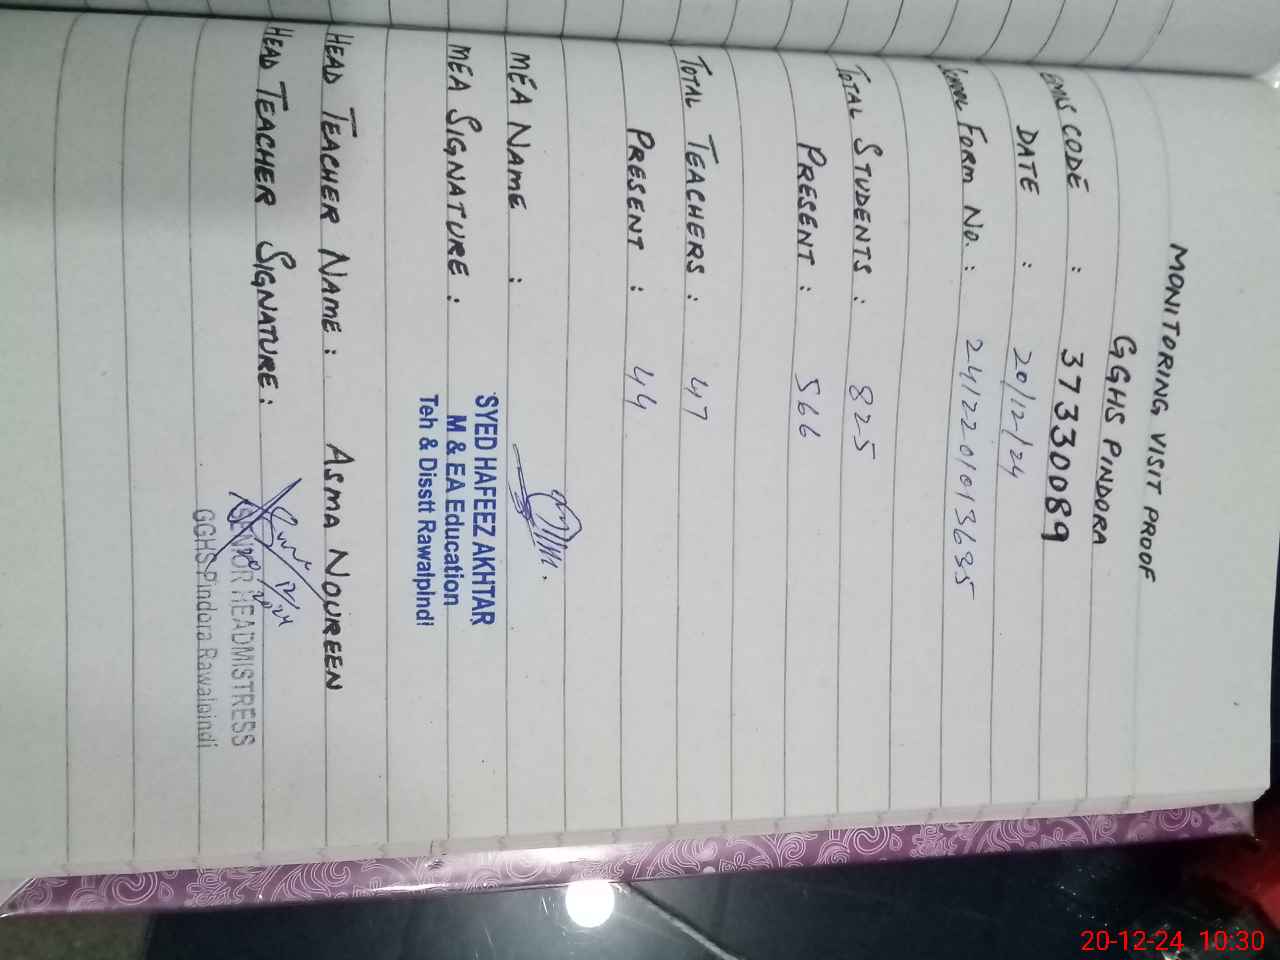 MONITORING VISIT PROOF
GGHS PINDORA
EMIS CODE : 37330089
DATE : 20/12/24
SCHOOL FORM NO. : 241220101013635
TOTAL STUDENTS : 825
PRESENT : 566
TOTAL TEACHERS : 47
PRESENT : 44
MEA NAME :
MEA SIGNATURE :
SYED HAFEEZ AKHTAR
M & EA Education
Teh & Disstt Rawalpindi
HEAD TEACHER NAME : ASMA NOUREEN
HEAD TEACHER SIGNATURE :
SENIOR HEADMISTRESS
GGHS Pindora Rawalpindi
20-12-24 10:30